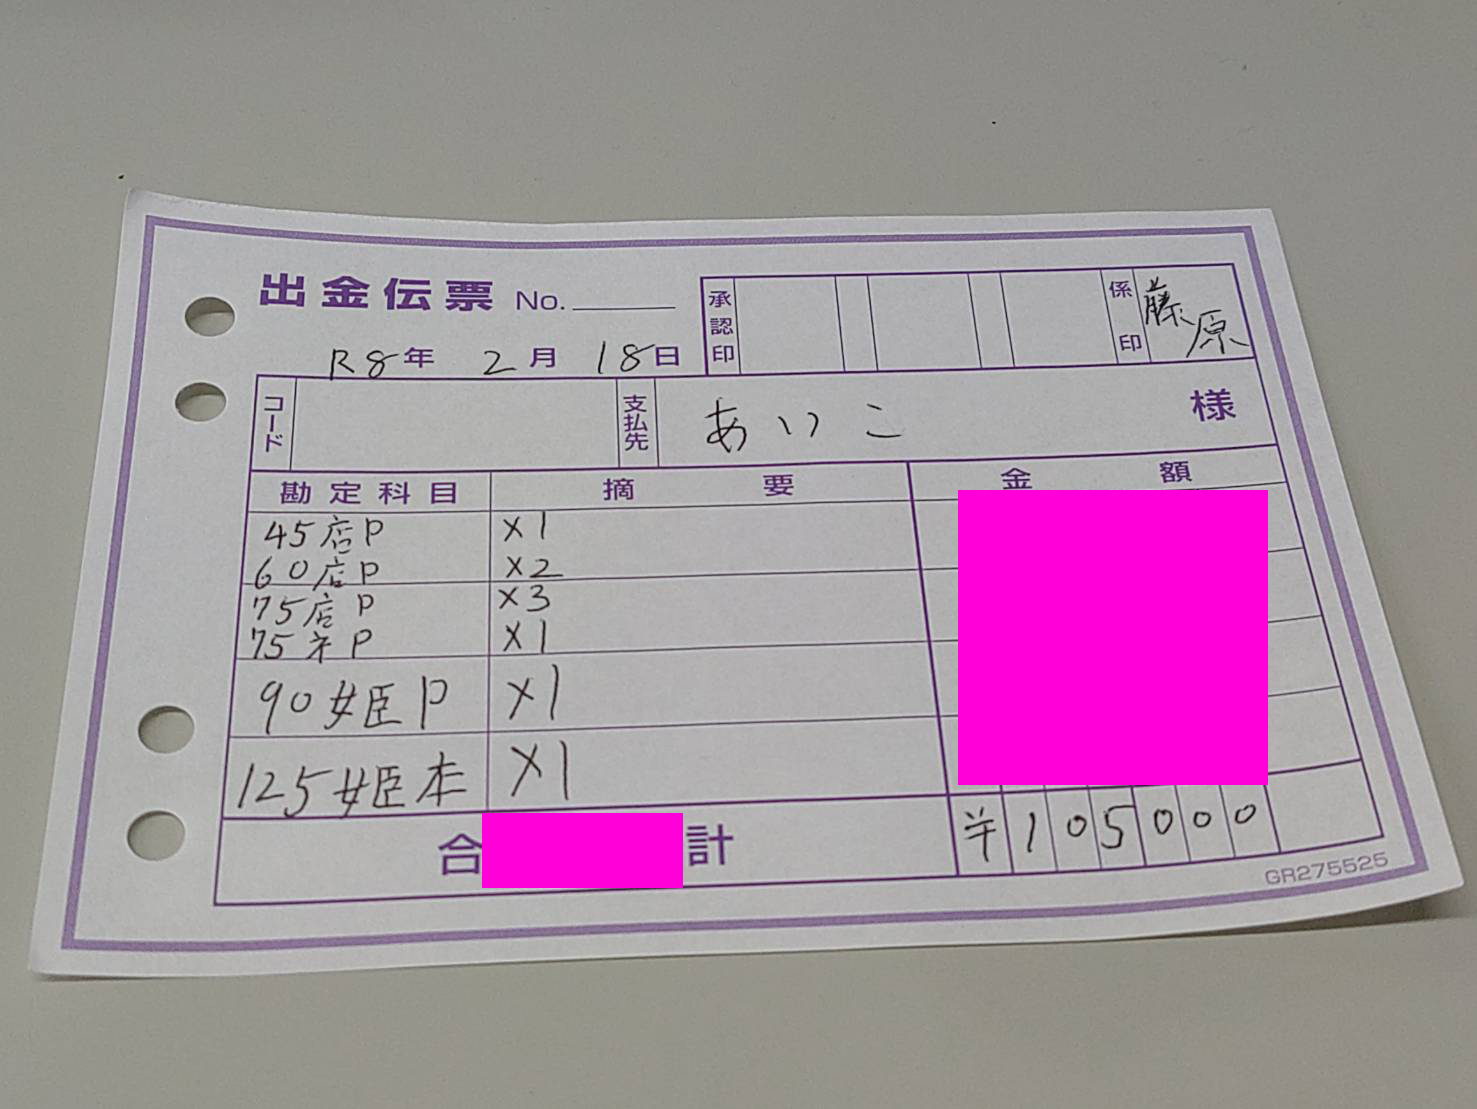 出金伝票 No.
R8年 2月 18日
承認印
係印 藤原
コード
支払先 あいこ 様
勘定科目 摘要 金額
45店P ×1
60店P ×2
75店P ×3
75ネP ×1
90姫P ×1
125姫本 ×1
合計 ¥105000
GR275525